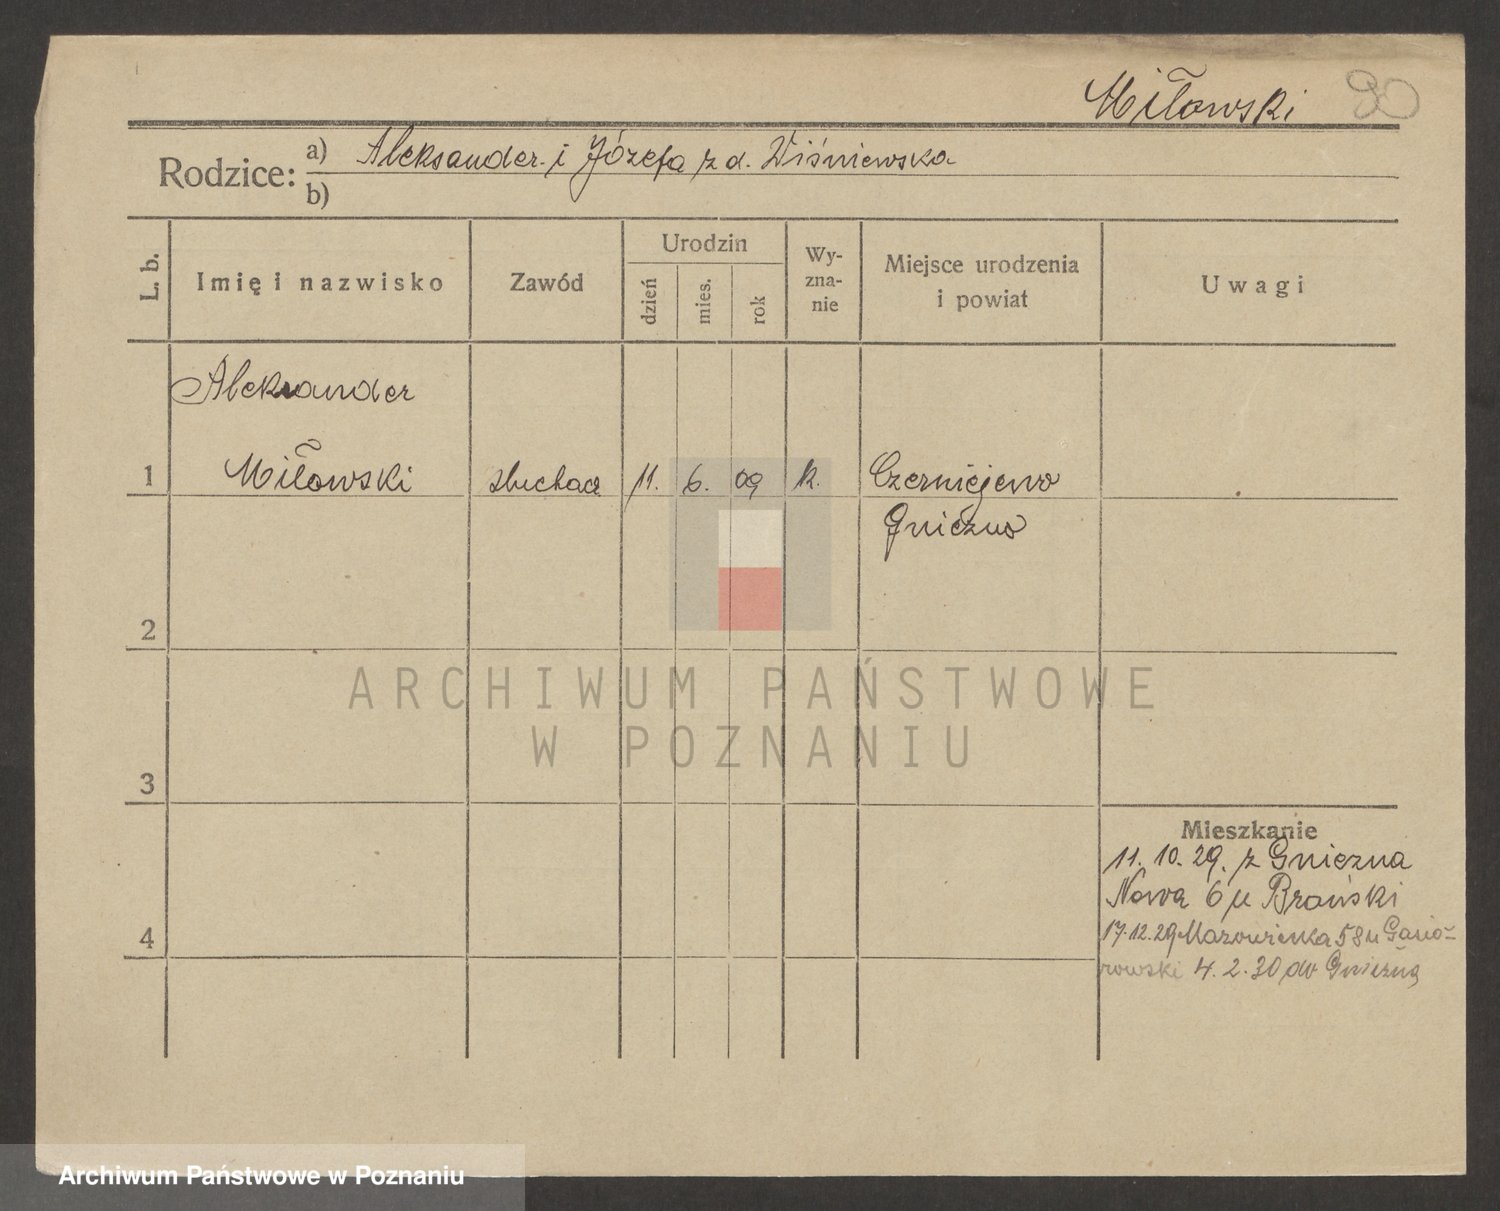 Miłowski 90
Rodzice:
a) Aleksander i Józefa z d. Wiśniewska
b)
L. b.
Imię i nazwisko
Zawód
Urodzin
dzień
mies.
rok
Wy-
zna-
nie
Miejsce urodzenia
i powiat
Uwagi
Aleksander
1 Miłowski słuchacz 11. 6. 09 k. Czerniejewo
Gniezno
2
3
4
Mieszkanie
11. 10. 29. z Gniezna
Nowa 6 u Brański
17.12.29 Mazowiecka 58 u Gąsio-
rowski 4. 2. 30 do Gniezna
ARCHIWUM PAŃSTWOWE
W POZNANIU
Archiwum Państwowe w Poznaniu